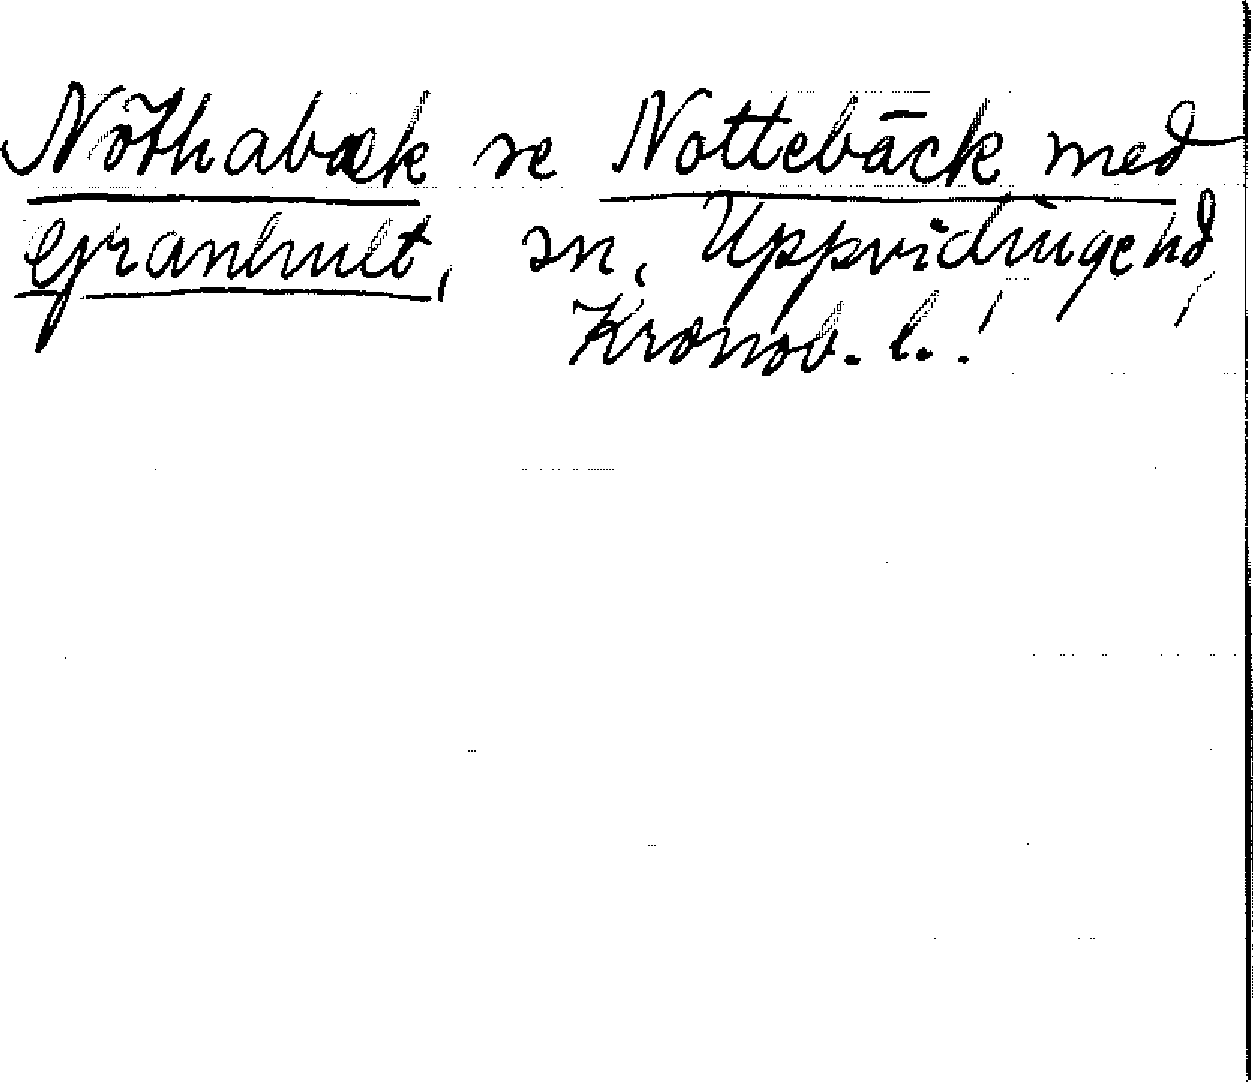 Nöthabæk se Nottebäck med
Granhult, sn, Uppvidinge hd,
Kronob. l.!